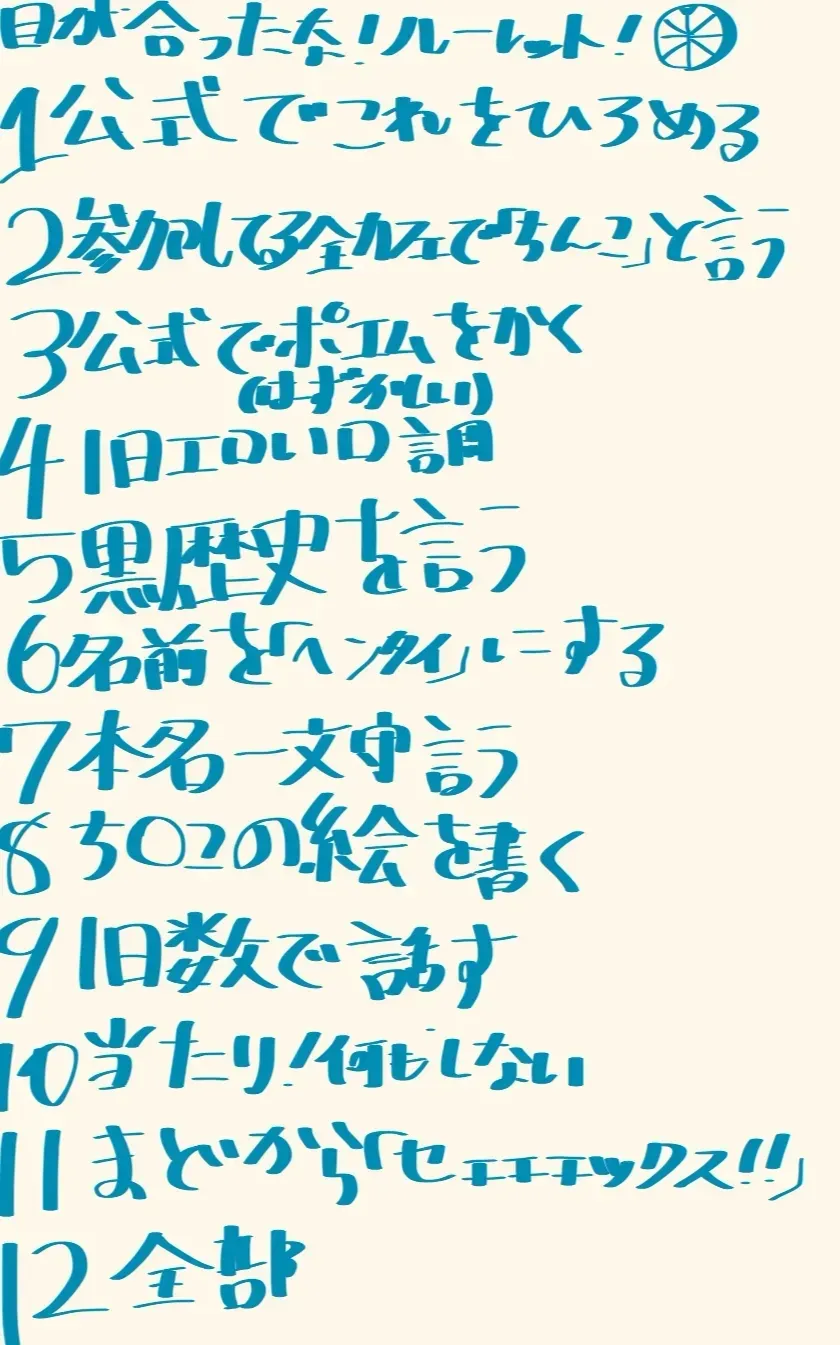 目が合ったな!ルーレット!
1公式でこれをひろめる
2参加してる全カフェで「ちんこ」と言う
3公式でポエムをかく
(はずかしい)
4 1日エロい口調
5黒歴史を言う
6名前を「ヘンタイ」にする
7本名一文字言う
8ち〇コの絵を書く
9 1日数で話す
10当たり!何もしない
11まどから「セエエエックス!!」
12全部